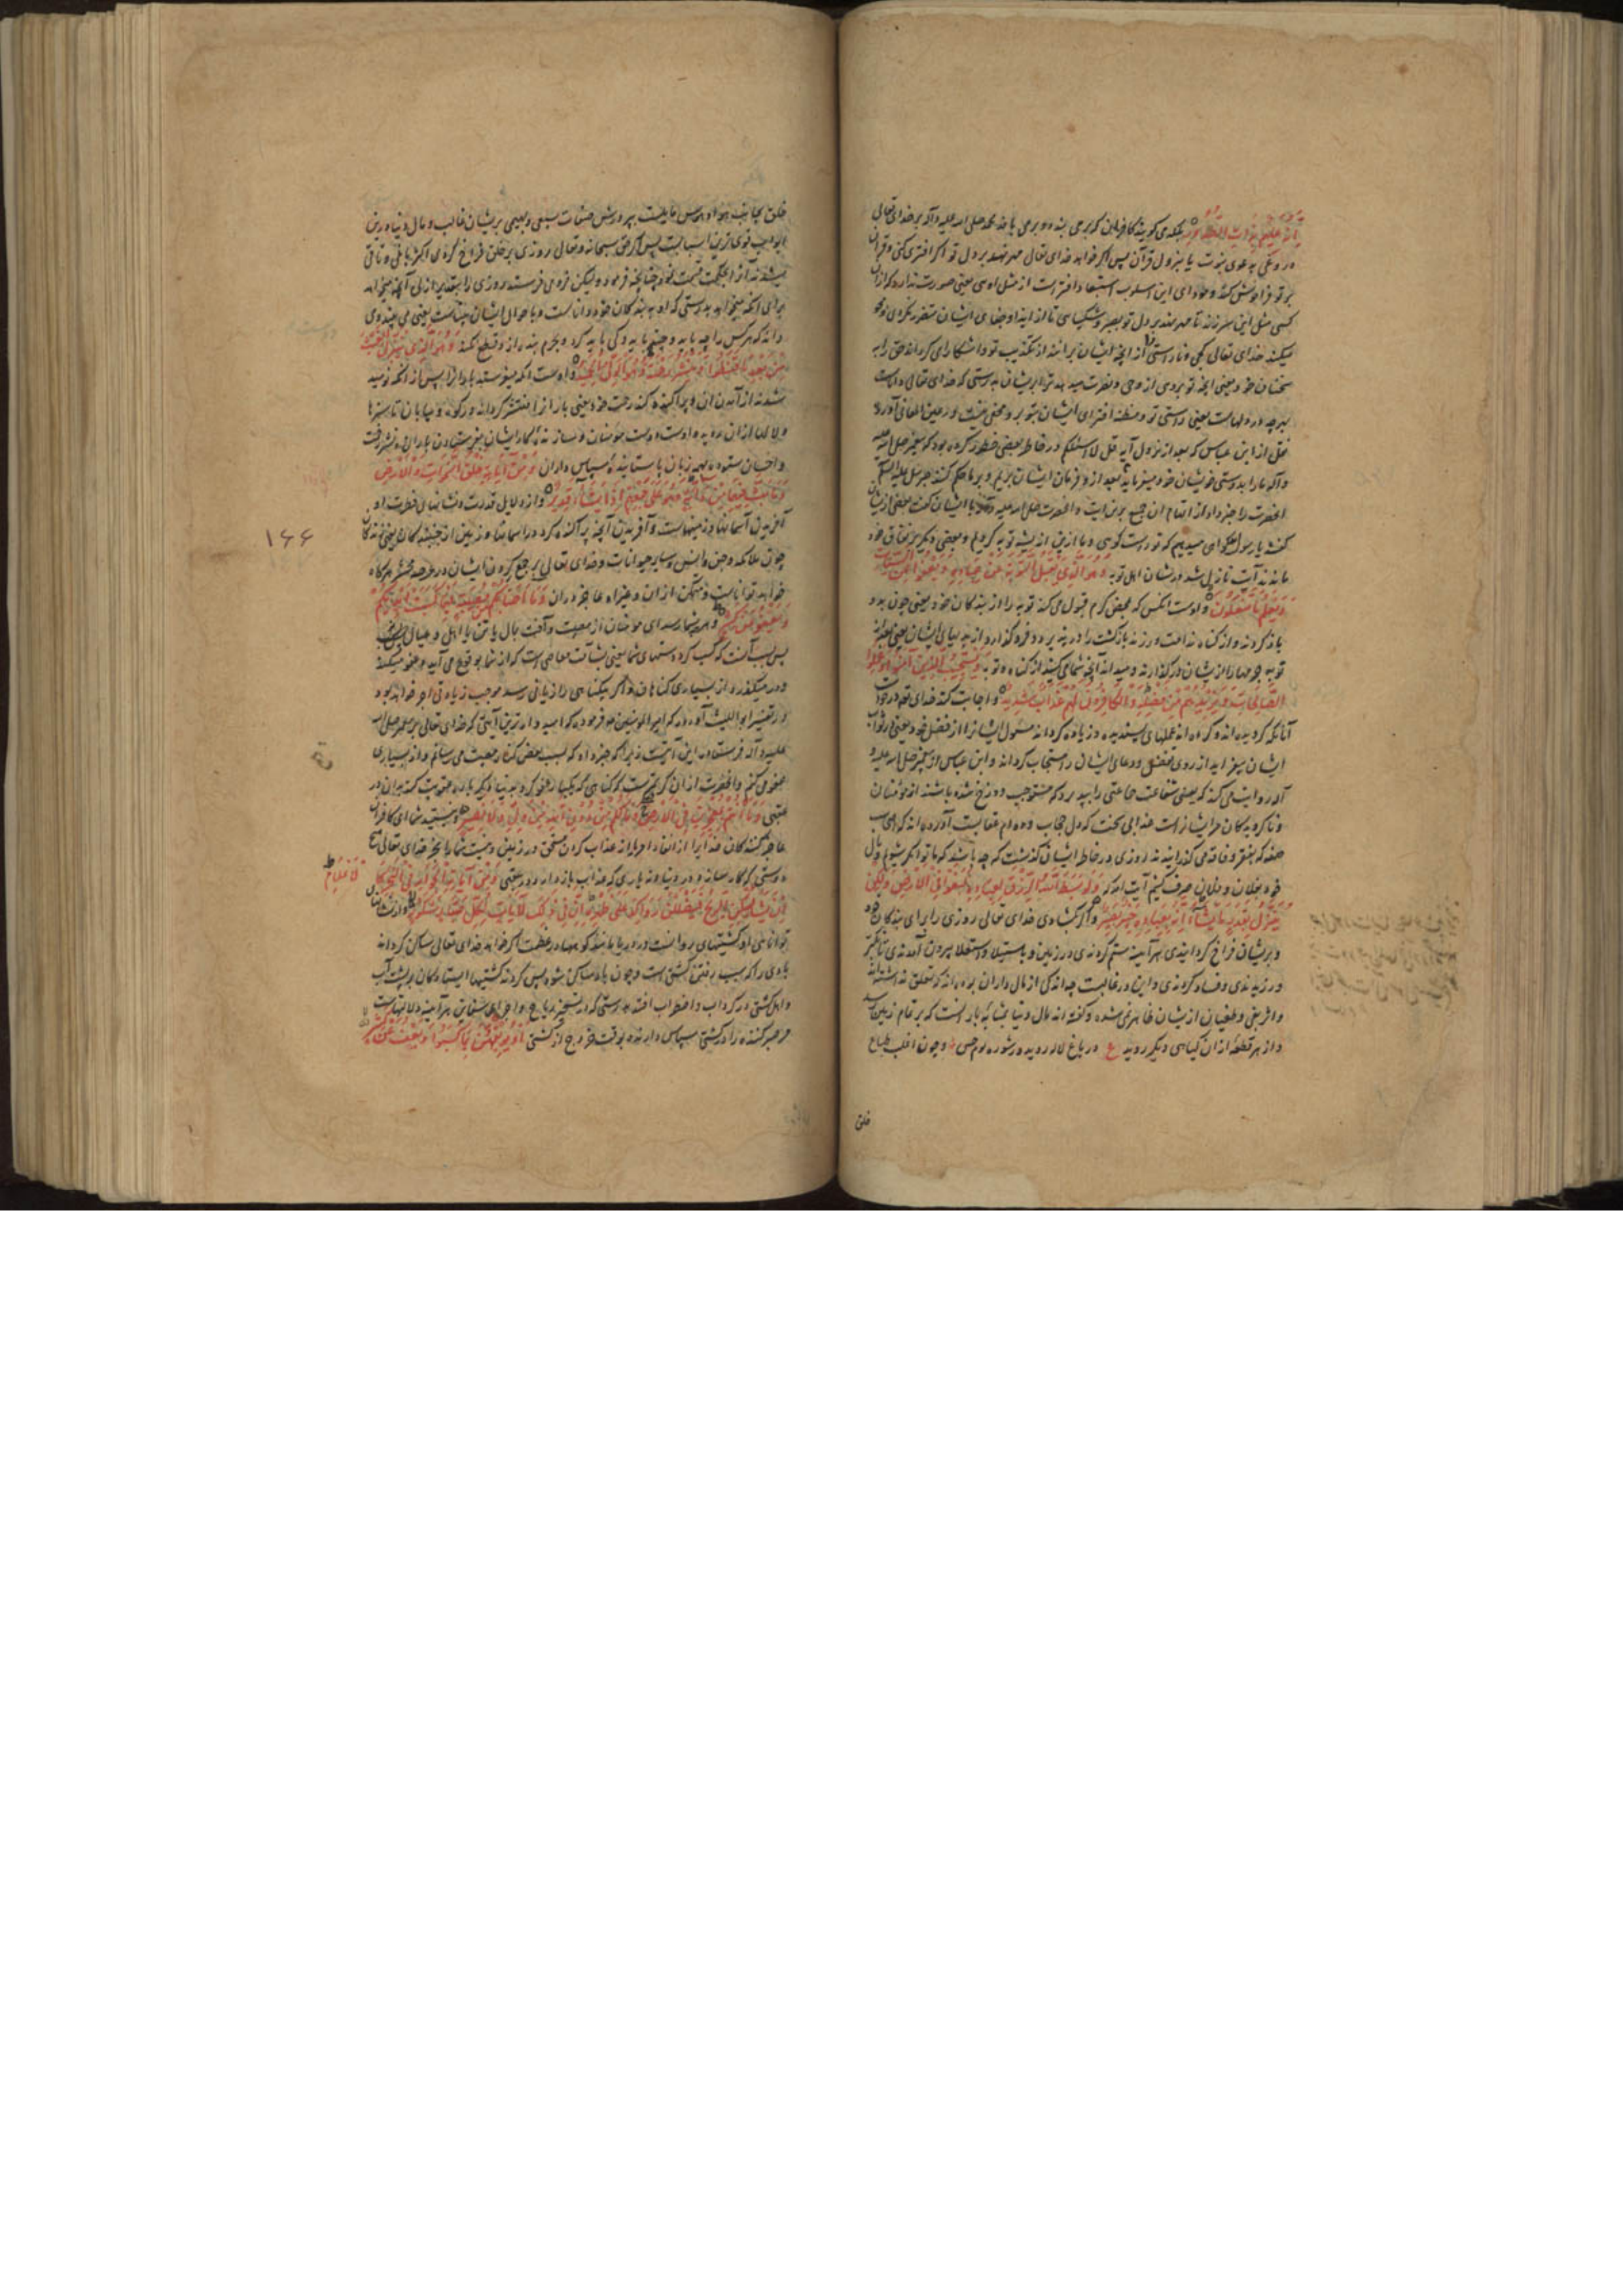 إنه عليم بذات الصدور بلکه می‌گویند کافران که برمی بندد محمد صلی الله علیه وآله بر خدای تعالی
دروغی بدعوی نبوت یا بنزول قرآن پس اگر خواهد خدای تعالی مهر نهد بر دل تو اگر افتری کنی و قرآن
بر تو فراموش کند و
کسی مثل این سر زند تا مهر نهد بر دل تو بصبر و شکیبایی تا از ایذا و جفای ایشان متضرر نگردی و محو
میکند خدای تعالی کجی و ناراستی را
سخنان خود یعنی آنچه تو بروی از وحی و نصرت میدهد ترا بر ایشان بدرستی که خدای تعالی داناست
بهرچه در دلهاست یعنی راستی تو و مظنه افترای ایشان بتو برو مخفی نیست و در عین المعانی آورده
نقل از ابن عباس که بعد از نزول آیه قل لا اسئلکم در خاطر بعضی خطور کرده بود که پیغمبر صلی الله علیه
وآله ما را بدوستی خویشان خود میفرماید تا بعد ازو فرمان ایشان بریم و بر ما حکم کنند جبرئیل علیه السلام
آنحضرت را خبر داد از اتهام آن جمع برین آیت و آنحضرت صلی الله علیه وآله با ایشان گفت بعضی از ایشان
گفتند یا رسول الله گواهی میدهیم که تو راست گویی و ما ازین اندیشه توبه کردیم و بعضی دیگر بر نفاق خود
ماندند آیت نازل شد در شان اهل توبه وهو الذي يقبل التوبة عن عباده ويعفو عن السيئات
ويعلم ما تفعلون و اوست آنکس که بمحض کرم قبول می کند توبه را از بندکان خود یعنی چون بدو
باز کردند و از گناه ندامت ورزند بازگشت را در پذیرد و درگذارد از بدیهای ایشان یعنی بعد از
توبه جرمها را از ایشان درگذارند و میداند آنچه شما می‌کنید از گناه و توبه ويستجيب الذين آمنوا وعملوا
الصالحات ويزيدهم من فضله والكافرون لهم عذاب شديد و اجابت کند خدای تعالی دعوات
آنانکه گرویده اند و کرده اند عملهای پسندیده و زیاده گرداند مسئول ایشانرا از فضل خود یعنی در ثواب
ایشان بیفزاید از روی تفضل و دعای ایشان را مستجاب گرداند و ابن عباس از پیغمبر صلی الله علیه و
آله روایت می کند که یعنی شفاعت جماعتی را بپذیرد که مستوجب دوزخ شده باشند از مؤمنان
و ناگرویدگان مر ایشانراست عذابی سخت که ذل حجاب و دوام عقابست آورده اند که اصحاب
صفه که بفقر و فاقه می گذرانیدند روزی در خاطر ایشان گذشت که چه باشد که ما توانگر شویم و مال
خود بفلان و فلان صرف کنیم آیت آمد که ولو بسط الله الرزق لعباده لبغوا في الأرض ولكن
ينزل بقدر ما يشاء إنه بعباده خبير بصير و اگر بگشادی خدای تعالی روزی را برای بندگان خود
و بر ایشان فراخ گردانیدی هر آینه ستم کردندی در زمین و باستیلا و استعلا بیرون آمدندی تا تکبر
ورزیدندی و فساد کردندی و این در غالبست چه اندکی از مال داران بوده اند که تعلق نداشته اند
و از بغی و طغیان از ایشان ظاهر نمی شده و گفته اند مال دنیا بمثابه باران است که بر تمام زمین رسد
و از هر قطعه از آن گیاهی دیگر روید ع در باغ لاله روید و در شوره بوم خس و چون اغلب طباع
خلق
خلق بجانب هوا و هوس مایلست پرورش صفات سبعی و بهیمی بر ایشان غالب و مال دنیا درین
ابواب قوی ترین اسبابست پس اگر حق سبحانه وتعالی روزی بر خلق فراخ کردی اکثر باغی و طاغی
میشدند آنرا بحکمت قسمت نمود چنانچه فرمود ولیکن فرو می فرستد روزی را بتقدیر ازلی آنچه میخواهد
برای آنکه میخواهد بدرستی که او به بندگان خود داناست و باحوال ایشان بیناست یعنی می بیند و می
داند که هر کس را چه باید و چند باید و کی باید کرد و بجرم بندراز و قطع نکند وهو الذي ينزل الغيث
من بعد ما قنطوا وينشر رحمته وهو الولي الحميد و اوست آنکه میفرستد باران را پس از آنکه نومید
شدند از آمدن آن و پراکنده کند رحمت خود یعنی باران را منتشر گرداند در کوه و بیابان تا سبزها
و لالها از آن بروید و اوست دوست مؤمنان و سازنده کار ایشان بفرستادن باران و نشر رحمت
و احسان ستوده بهمه زبان یا ستاینده سپاس داران ومن آياته خلق السموات والأرض
وما بث فيهما من دابة وهو على جمعهم إذا يشاء قدير و از دلایل قدرت و نشانهای فطرت او
آفریدن آسمانها و زمینهاست و آفریدن آنچه پراکنده کرد در آسمانها و زمین از جنبندگان یعنی زندگان
چون ملائکه و جن و انس و سایر حیوانات و خدای تعالی بر جمع کردن ایشان در عرصه محشر هرگاه
خواهد تواناست و متمکن از آن و غیر او عاجز در آن وما أصابكم من مصيبة فبما كسبت أيديكم
ويعفو عن كثير و هرچه بشما رسد ای مؤمنان از مصیبت و آفت بمال یا تن یا اهل و عیال
پس بسبب آنست که کسب کرده دستهای شما یعنی بشآمت معاصی است که از شما بوقوع می آید و عفو میکند
و در میگذرد از بسیاری گناهان و اگر بیگناهی را زیانی رسد موجب زیادتی اجر خواهد بود
در تفسیر ابو اللیث آورده که امیر المؤمنین فرموده که امید وارترین آیتی که خدای تعالی بر پیغمبر صلی الله
علیه وآله فرستاده این آیتست زیرا که خبر داده که بسبب بعضی گناه مصیبت می رسانم و از بسیاری
عفو می کنم و آنحضرت از آن کریمترست که گناهی که یکبار عفو کرده بدنیا دیگر باره عقوبت کند بدان در
عقبی وما أنتم بمعجزين في الأرض وما لكم من دون الله من ولي ولا نصير و نیستید شما ای کافران
عاجز کنندگان خدایرا از انفاذ امر یا از عذاب کردن مستحق در زمین و نیست شما را بجز خدای تعالی هیچ
دوستی که کار سازد در دنیا و نه یاری که عذاب باز دارد در عقبی ومن آياته الجوار في البحر كالأعلام
إن يشأ يسكن الريح فيظللن رواكد على ظهره إن في ذلك لآيات لكل صبار شكور و از نشانهای
توانایی او کشتیهای روانست در دریا مانند کوهها در عظمت اگر خواهد خدای تعالی ساکن گرداند
بادی را که سبب رفتن کشتی است و چون باد ساکن شود پس گردند کشتیها ایستادگان بر پشت آب
و اهل کشتی در گرداب و اضطراب افتند بدرستی که در تسخیر ریاح و اجرای سفاین هر آینه دلالتهاست
مر صبر کننده را در کشتی سپاس دارنده بوقت خروج از کشتی أو يوبقهن بما كسبوا ويعف عن كثير
۱۶۶